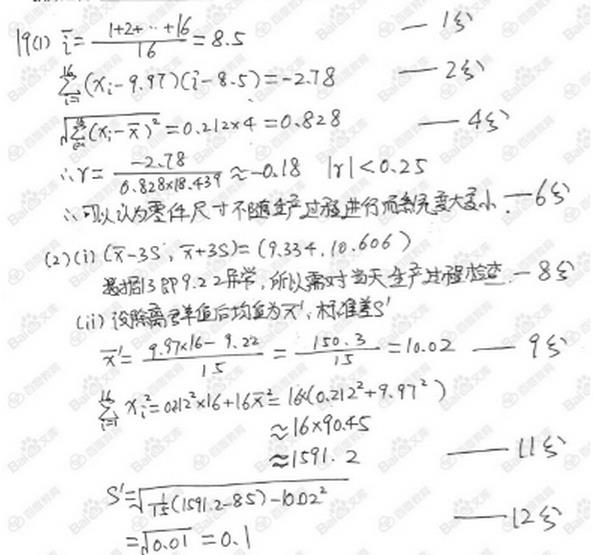 19(1) ī = (1+2+…+16)/16 = 8.5 — 1分
∑_{i=1}^{16}(xᵢ-9.97)(i-8.5) = -2.78 — 2分
√(∑_{i=1}^{16}(xᵢ-x̄)²) = 0.212×4 = 0.828 — 4分
∴ r = -2.78/(0.828×18.439) ≈ -0.18 |r| < 0.25
∴ 可以认为零件尺寸不随生产过程进行而系统变大变小. — 6分
(2)(i) (x̄-3S, x̄+3S) = (9.334, 10.606)
数据13即9.22异常,所以需对当天生产过程检查. — 8分
(ii) 设除离群值后均值为x̄', 标准差S'
x̄' = (9.97×16-9.22)/15 = 150.3/15 = 10.02 — 9分
∑_{i=1}^{16} xᵢ² = 0.212²×16+16x̄² = 16×(0.212²+9.97²)
≈ 16×90.45
≈ 1591.2 — 11分
S' = √(1/15(1591.2-85)-10.02²)
= √0.01 = 0.1 — 12分